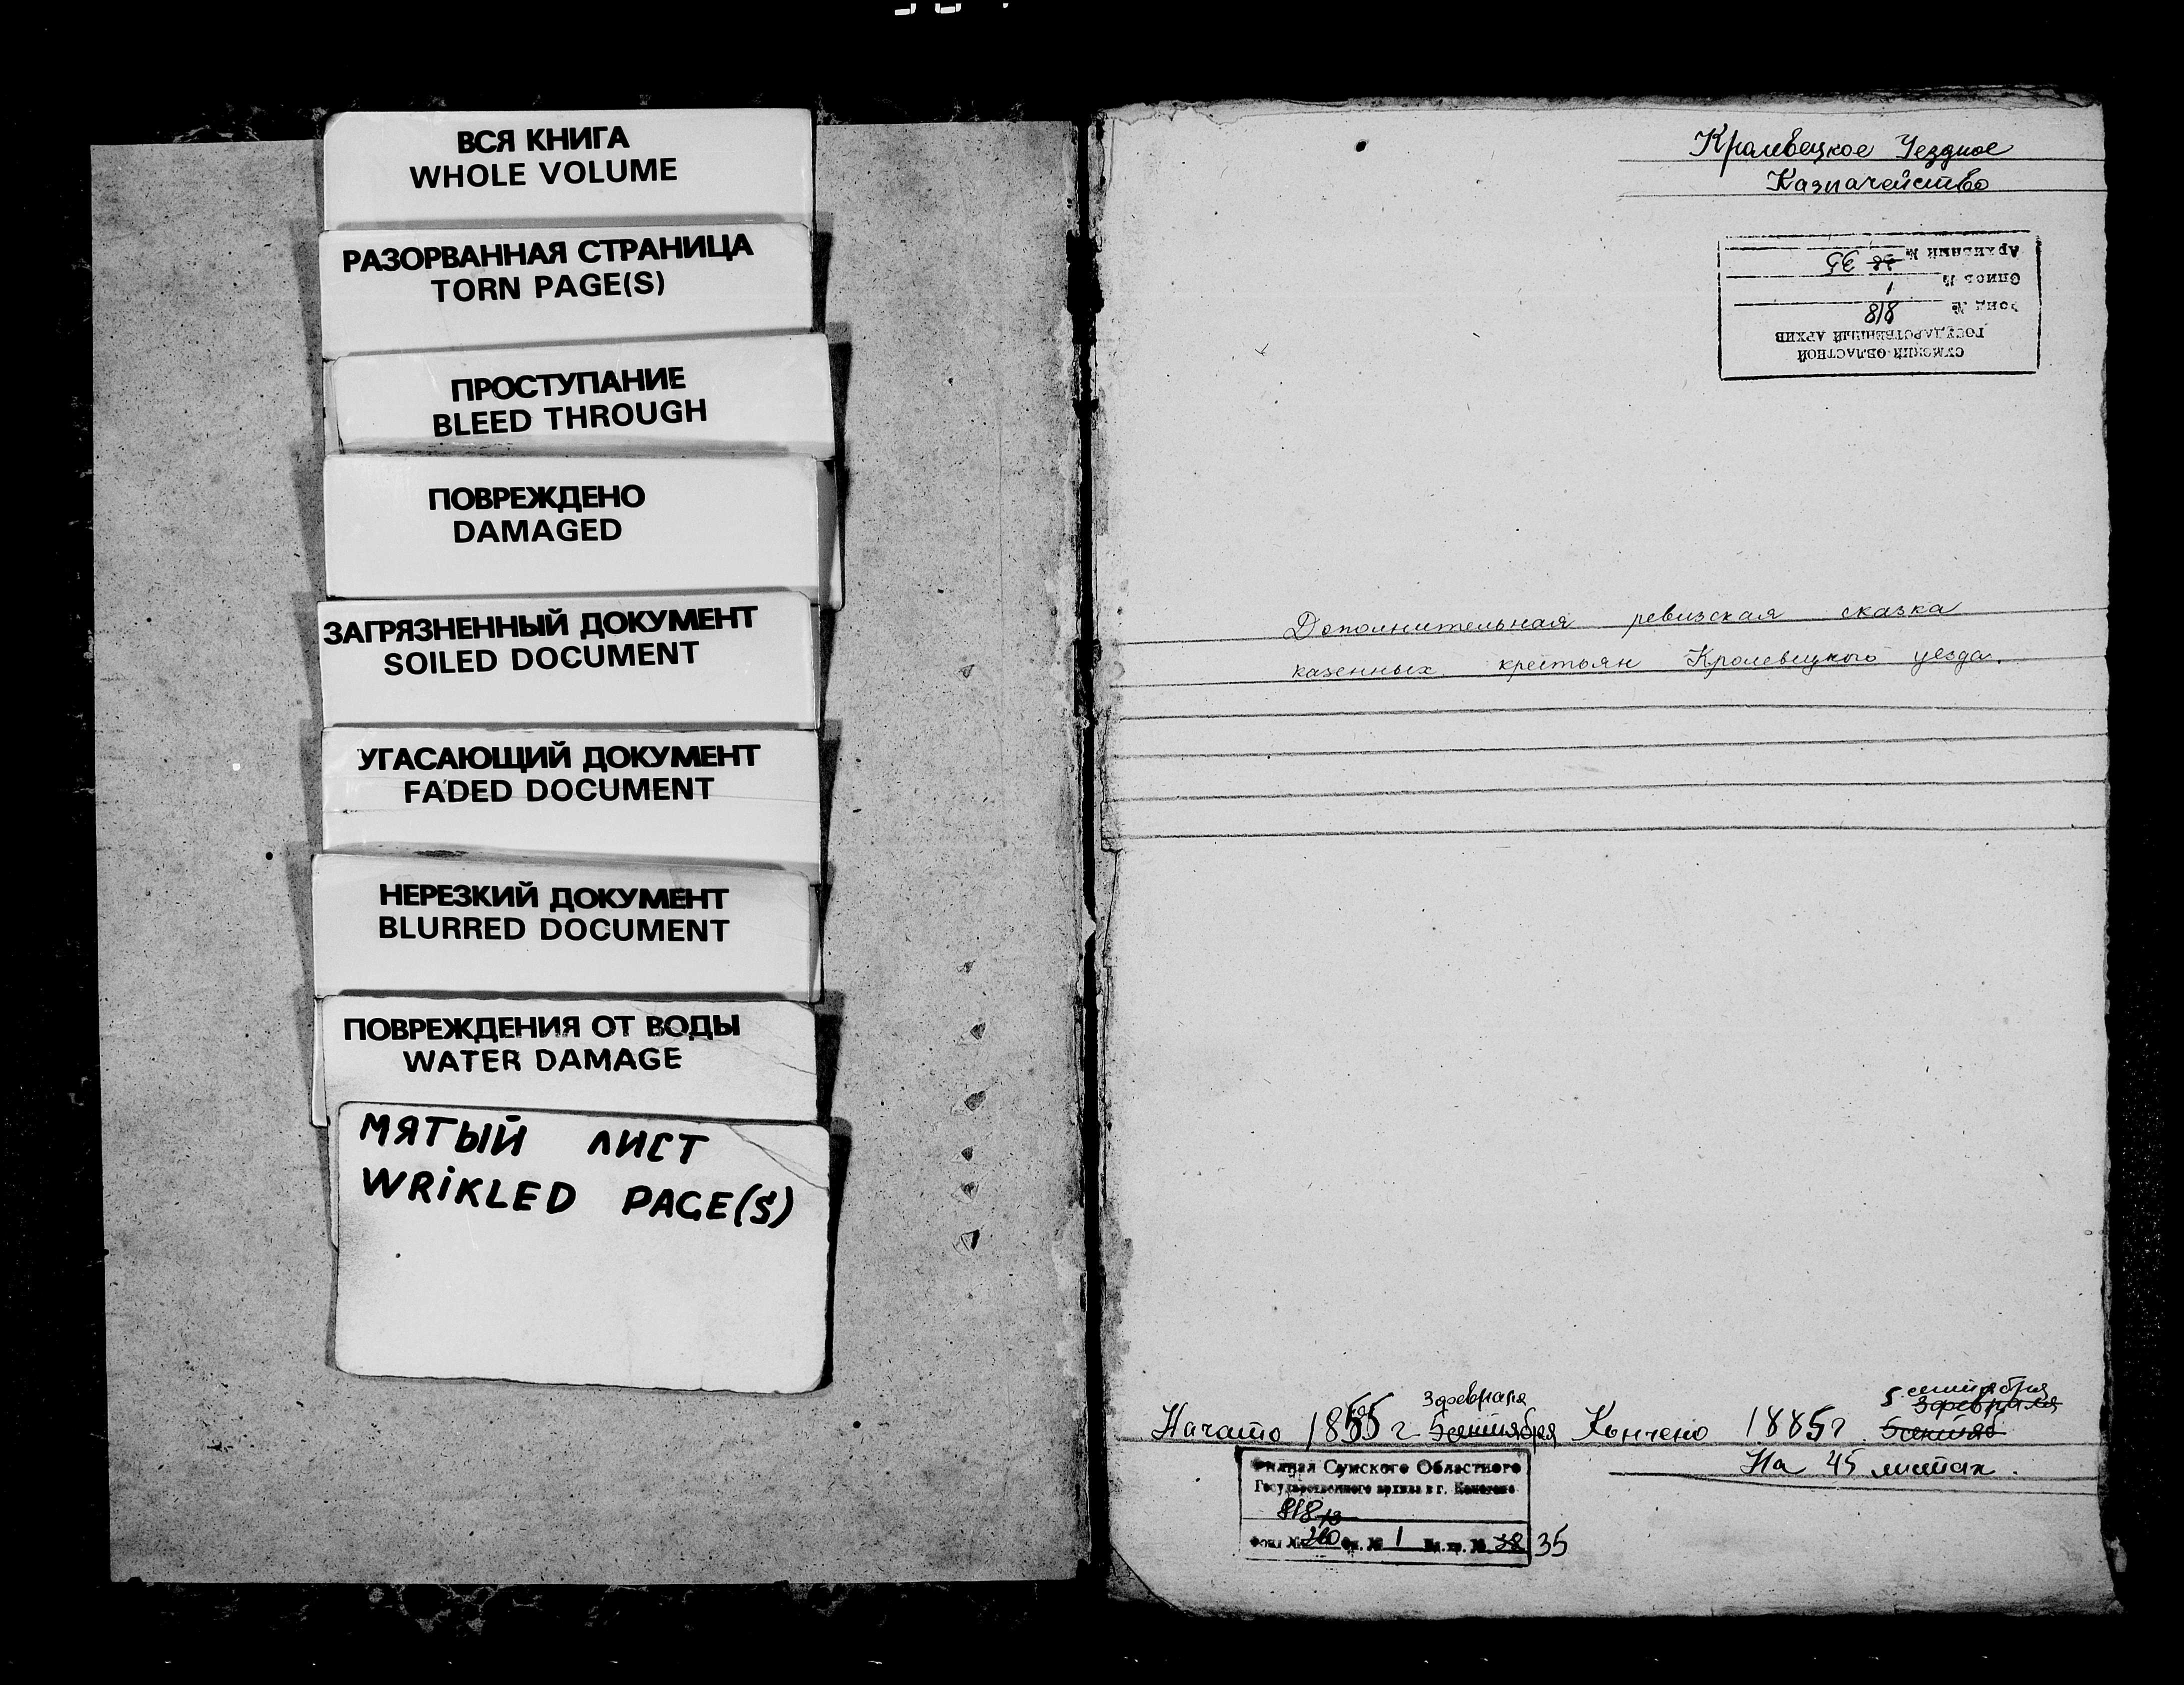 ВСЯ КНИГА
WHOLE VOLUME
РАЗОРВАННАЯ СТРАНИЦА
TORN PAGE(S)
ПРОСТУПАНИЕ
BLEED THROUGH
ПОВРЕЖДЕНО
DAMAGED
ЗАГРЯЗНЕННЫЙ ДОКУМЕНТ
SOILED DOCUMENT
УГАСАЮЩИЙ ДОКУМЕНТ
FADED DOCUMENT
НЕРЕЗКИЙ ДОКУМЕНТ
BLURRED DOCUMENT
ПОВРЕЖДЕНИЯ ОТ ВОДЫ
WATER DAMAGE
МЯТЫЙ ЛИСТ
WRIKLED PAGE(S)
Кролевецкое Уездное
Казначейство
СУМСКИЙ ОБЛАСТНОЙ
ГОСУДАРСТВЕННЫЙ АРХИВ
Фонд № 818
Опись № 1
Архивный № 38 35
Дополнительная ревизская сказка
казенных крестьян Кролевецкого уезда.
3 февраля
5 сентября
3 февраля
Начато 1855 г 5 сентября Кончено 1885 г
На 45 листах.
Филиал Сумского Областного
Государственного архива в г. Конотопе
818
Фонд № Оп. № 1 Ед. хр. № 38 35